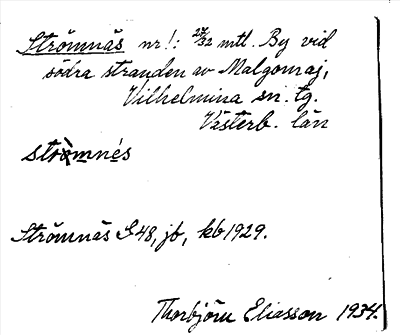 Strömnäs nr 1: 27/32 mtl. By vid
södra stranden av Malgomaj,
Vilhelmina sn. tg.
Västerb. län
stròmnés
Strömnäs G 48, jb, kb 1929.
Thorbjörn Eliasson 1934.